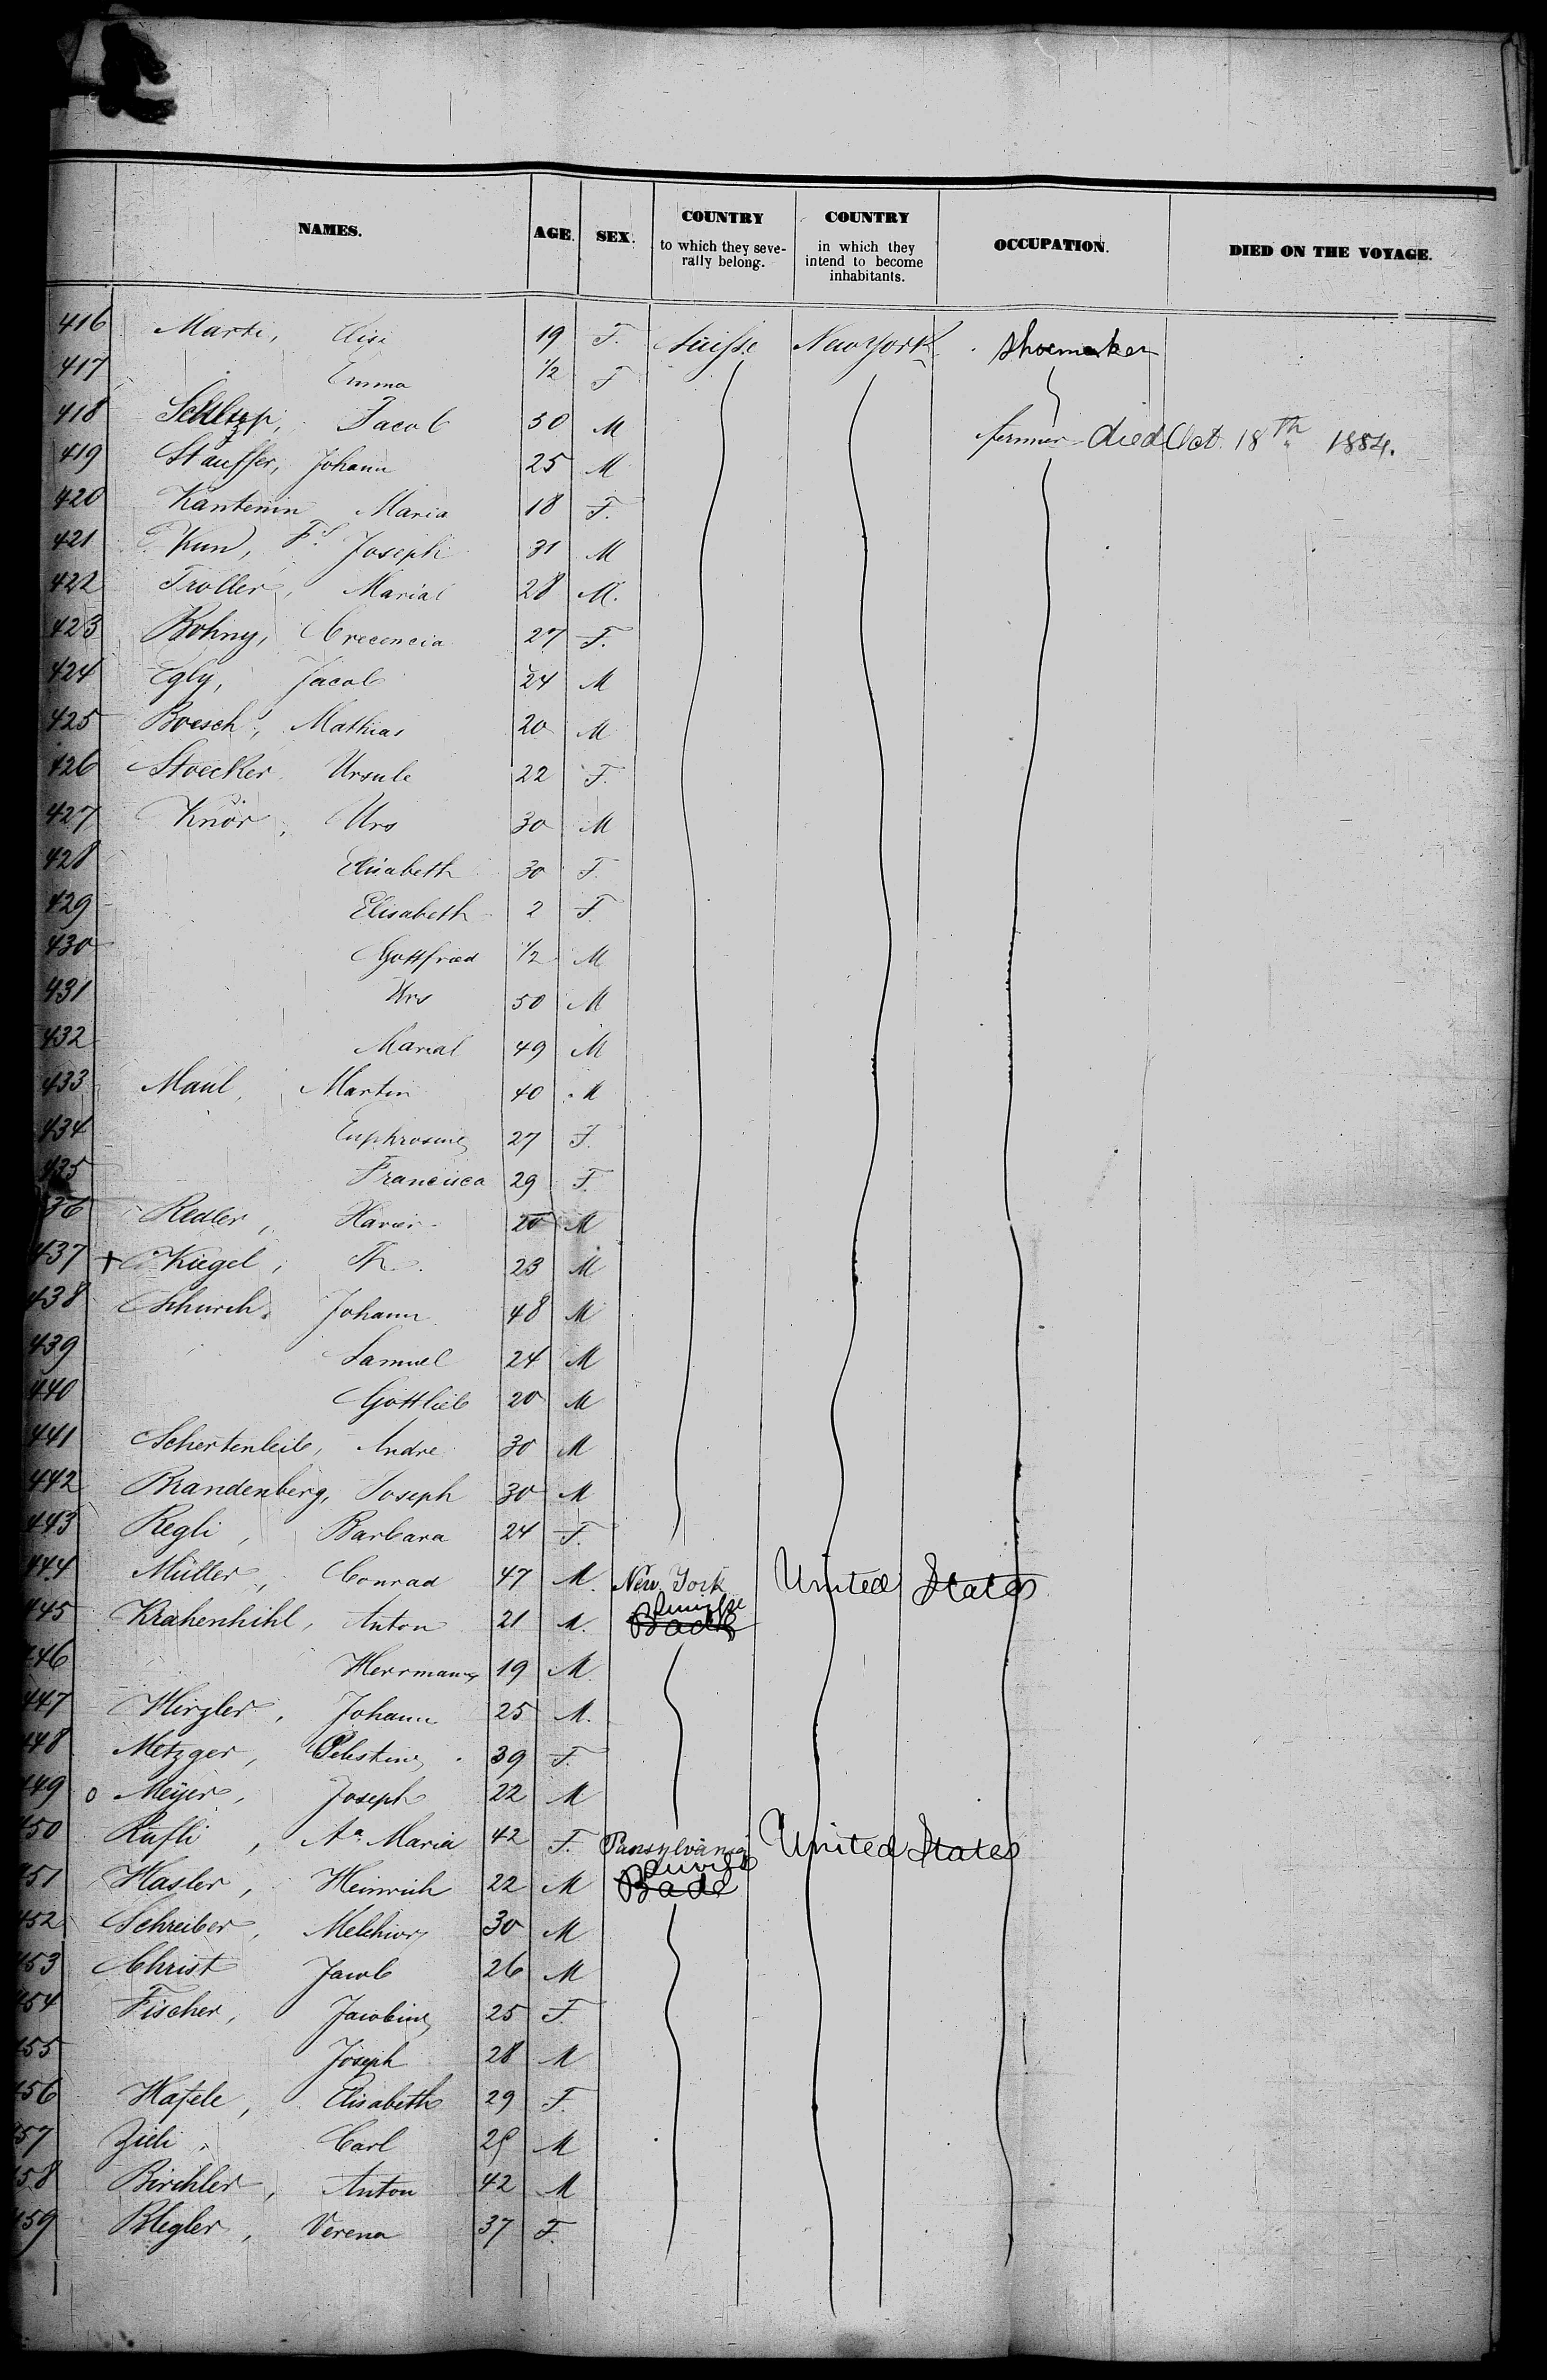 NAMES. AGE. SEX. COUNTRY to which they severally belong. COUNTRY in which they intend to become inhabitants. OCCUPATION. DIED ON THE VOYAGE.
416 Marti, Elise 19 F. Suisse New York shoemaker
417 Emma 1/2 F
418 Jacob 50 M farmer died Oct. 18th 1884.
419 Stauffer, Johann 25 M
420 Kantenin Maria 18 F.
421 Kun, Fs. Joseph 31 M
422 Troller, Marial 28 M.
423 Bohny, Crecencia 27 F.
424 Egly, Jacob 24 M
425 Boesch, Mathias 20 M
426 Stoecker Ursule 22 F.
427 Knör, Urs 30 M
428 Elisabeth 30 F.
429 Elisabeth 2 F.
430 Gottfried 1/2 M
431 Urs 50 M
432 Marial 49 M
433 Maul, Martin 40 M
434 Euphrosine 27 F.
435 Francisca 29 F.
36 Redler, Xavier 20 M
437 + Kugel, Th. 23 M
438 Schurch, Johann 48 M
439 Samuel 24 M
440 Gottlieb 20 M
441 Schertenleib, Andre 30 M
442 Brandenberg, Joseph 30 M
443 Regli, Barbara 24 F.
444 Müller, Conrad 47 M. New York United States
445 Krahenbihl, Anton 21 M. Bade Suisse
446 Herrmann 19 M.
447 Hirzler, Johann 25 M.
448 Metzger, Celestine 39 F.
449 o Meyer, Joseph 22 M
450 Rufli, Aa. Maria 42 F. Pansylvania United States
451 Hasler, Heinrich 22 M Bade Suisse
452 Schreiber, Melchior 30 M
453 Christ Jacob 26 M
454 Fischer, Jacobine 25 F.
455 Joseph 28 M
456 Hafele, Elisabeth 29 F.
457 Zieli, Carl 25 M
458 Birchler, Anton 42 M
459 Blegler, Verena 37 F.